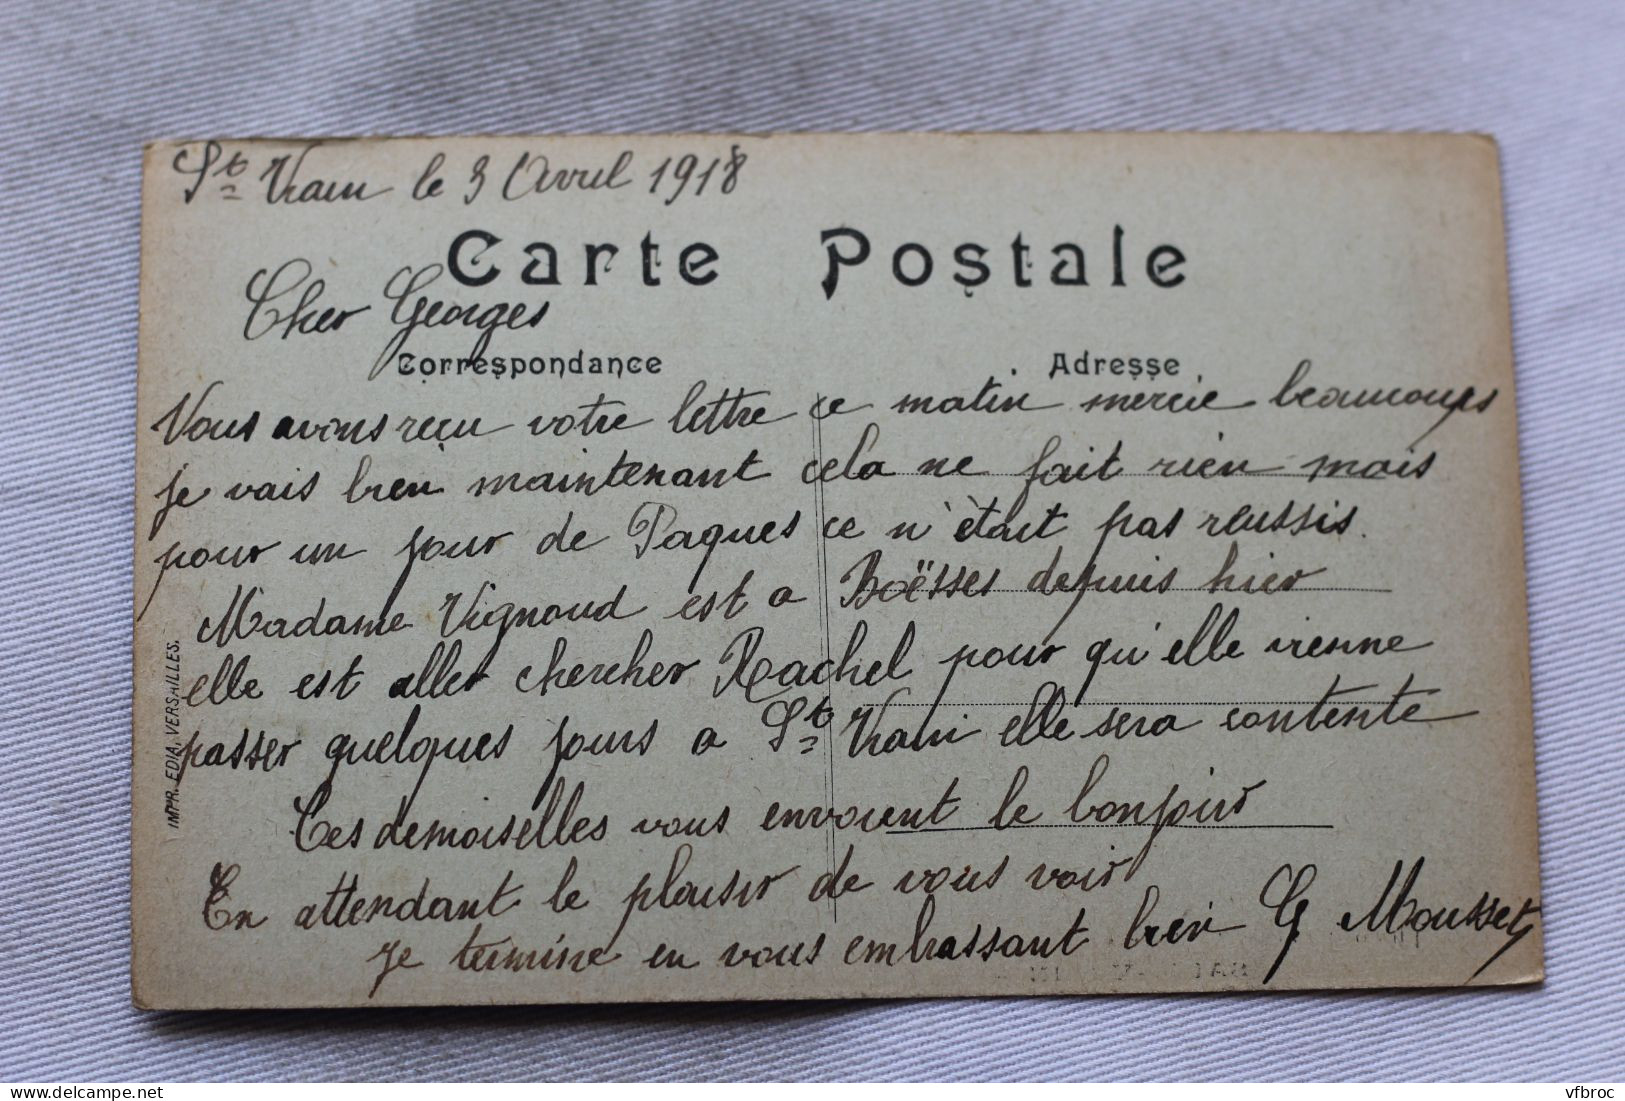 St Vrain le 3 Avril 1918
Carte Postale
Cher Georges
Correspondance
Adresse
Vous avons reçu votre lettre ce matin mercie beaucoups
je vais bien maintenant cela ne fait rien mais
pour un jour de Paques ce n'était pas reussis.
Madame Vignaud est a Boësses depuis hier
elle est aller chercher Rachel pour qu'elle vienne
passer quelques jours a St Vrain elle sera contente
Ces demoiselles vous envoient le bonjour
En attendant le plaisir de vous voir
je termine en vous embrassant bien G Mousset
IMPR. EDIA. VERSAILLES.
www.delcampe.net
vfbroc